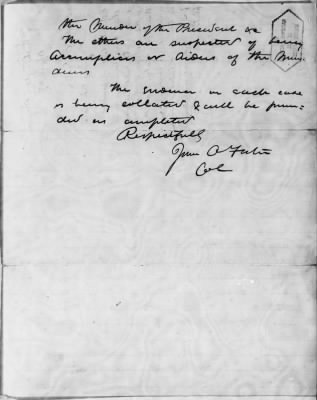 the Murder of the President &c
The others are suspected of being
accomplices or Aiders of the Mur-
derers
The evidence in each case
is being collated & will be furni-
ded as completed
Respectfully
John A Foster
Col